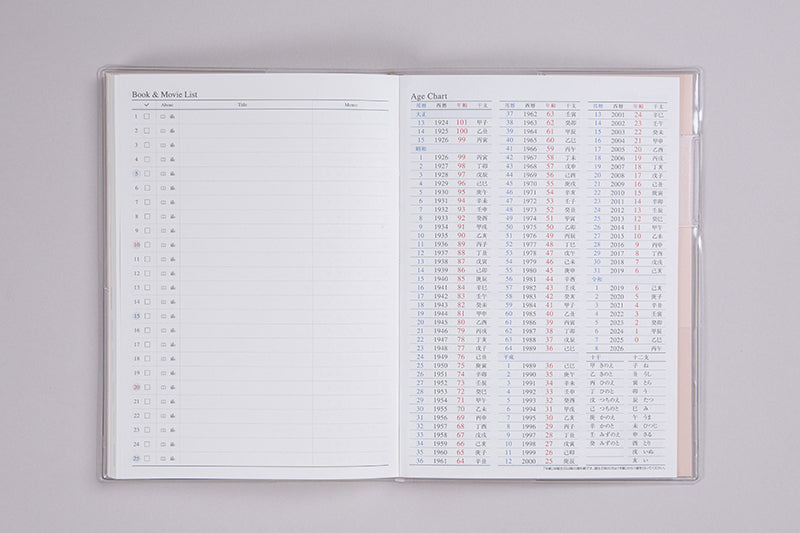 Book & Movie List
✓ About Title Memo
1
2
3
4
5
6
7
8
9
10
11
12
13
14
15
16
17
18
19
20
21
22
23
24
25
Age Chart
元暦 西暦 年齢 干支
大正
13 1924 101 甲子
14 1925 100 乙丑
15 1926 99 丙寅
昭和
1 1926 99 丙寅
2 1927 98 丁卯
3 1928 97 戊辰
4 1929 96 己巳
5 1930 95 庚午
6 1931 94 辛未
7 1932 93 壬申
8 1933 92 癸酉
9 1934 91 甲戌
10 1935 90 乙亥
11 1936 89 丙子
12 1937 88 丁丑
13 1938 87 戊寅
14 1939 86 己卯
15 1940 85 庚辰
16 1941 84 辛巳
17 1942 83 壬午
18 1943 82 癸未
19 1944 81 甲申
20 1945 80 乙酉
21 1946 79 丙戌
22 1947 78 丁亥
23 1948 77 戊子
24 1949 76 己丑
25 1950 75 庚寅
26 1951 74 辛卯
27 1952 73 壬辰
28 1953 72 癸巳
29 1954 71 甲午
30 1955 70 乙未
31 1956 69 丙申
32 1957 68 丁酉
33 1958 67 戊戌
34 1959 66 己亥
35 1960 65 庚子
36 1961 64 辛丑
元暦 西暦 年齢 干支
37 1962 63 壬寅
38 1963 62 癸卯
39 1964 61 甲辰
40 1965 60 乙巳
41 1966 59 丙午
42 1967 58 丁未
43 1968 57 戊申
44 1969 56 己酉
45 1970 55 庚戌
46 1971 54 辛亥
47 1972 53 壬子
48 1973 52 癸丑
49 1974 51 甲寅
50 1975 50 乙卯
51 1976 49 丙辰
52 1977 48 丁巳
53 1978 47 戊午
54 1979 46 己未
55 1980 45 庚申
56 1981 44 辛酉
57 1982 43 壬戌
58 1983 42 癸亥
59 1984 41 甲子
60 1985 40 乙丑
61 1986 39 丙寅
62 1987 38 丁卯
63 1988 37 戊辰
64 1989 36 己巳
平成
1 1989 36 己巳
2 1990 35 庚午
3 1991 34 辛未
4 1992 33 壬申
5 1993 32 癸酉
6 1994 31 甲戌
7 1995 30 乙亥
8 1996 29 丙子
9 1997 28 丁丑
10 1998 27 戊寅
11 1999 26 己卯
12 2000 25 庚辰
元暦 西暦 年齢 干支
13 2001 24 辛巳
14 2002 23 壬午
15 2003 22 癸未
16 2004 21 甲申
17 2005 20 乙酉
18 2006 19 丙戌
19 2007 18 丁亥
20 2008 17 戊子
21 2009 16 己丑
22 2010 15 庚寅
23 2011 14 辛卯
24 2012 13 壬辰
25 2013 12 癸巳
26 2014 11 甲午
27 2015 10 乙未
28 2016 9 丙申
29 2017 8 丁酉
30 2018 7 戊戌
31 2019 6 己亥
令和
1 2019 6 己亥
2 2020 5 庚子
3 2021 4 辛丑
4 2022 3 壬寅
5 2023 2 癸卯
6 2024 1 甲辰
7 2025 0 乙巳
8 2026 丙午
十干 十二支
甲 きのえ 子 ね
乙 きのと 丑 うし
丙 ひのえ 寅 とら
丁 ひのと 卯 う
戊 つちのえ 辰 たつ
己 つちのと 巳 み
庚 かのえ 午 うま
辛 かのと 未 ひつじ
壬 みずのえ 申 さる
癸 みずのと 酉 とり
戌 いぬ
亥 い